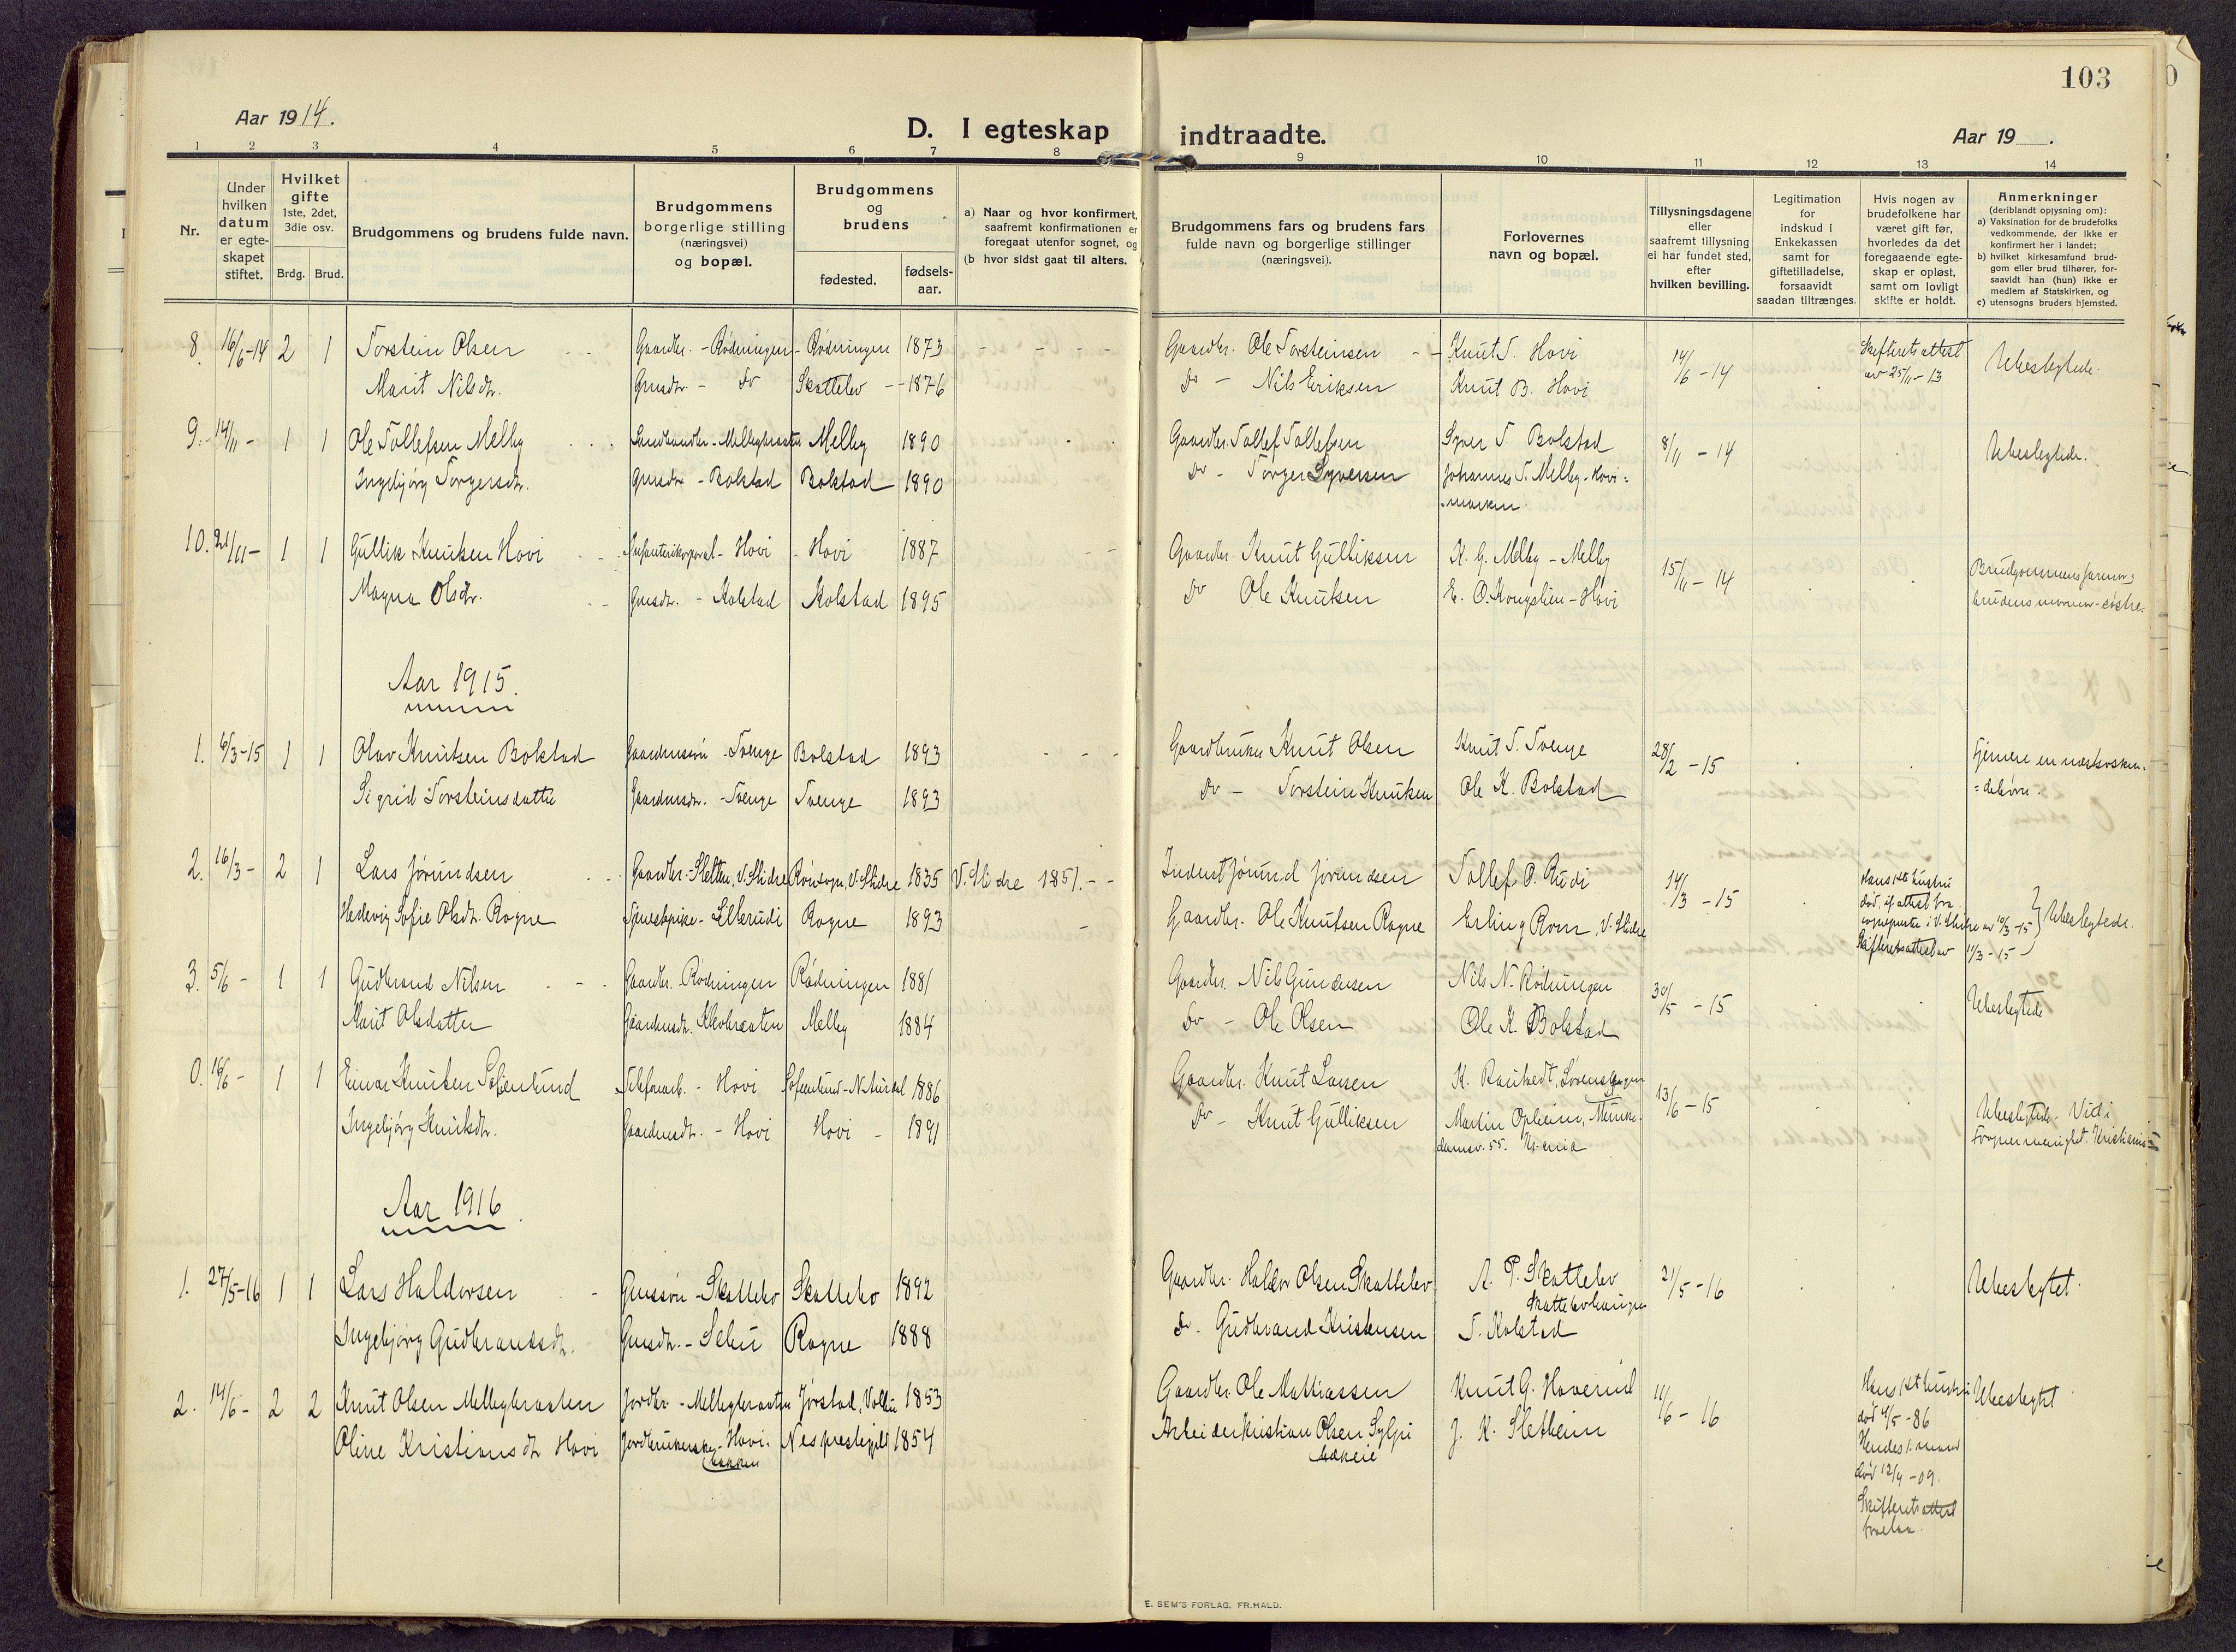 103
Aar 1914.
D. I egteskap indtraadte.
Aar 19__.
1 2 3 4 5 6 7 8 9 10 11 12 13 14
Nr.
Under hvilken datum er egteskapet stiftet.
Hvilket gifte 1ste, 2det, 3die osv.
Brdg. Brud.
Brudgommens og brudens fulde navn.
Brudgommens borgerlige stilling (næringsvei) og bopæl.
Brudgommens og brudens
fødested. fødselsaar.
a) Naar og hvor konfirmert, saafremt konfirmationen er foregaat utenfor sognet, og
(b hvor sidst gaat til alters.
Brudgommens fars og brudens fars fulde navn og borgerlige stillinger (næringsvei).
Forlovernes navn og bopæl.
Tillysningsdagene eller saafremt tillysning ei har fundet sted, efter hvilken bevilling.
Legitimation for indskud i Enkekassen samt for giftetilladelse, forsaavidt saadan tiltrænges.
Hvis nogen av brudefolkene har været gift før, hvorledes da det foregaaende egteskap er opløst, samt om lovligt skifte er holdt.
Anmerkninger (deriblandt oplysning om):
a) Vaksination for de brudefolks vedkommende, der ikke er konfirmert her i landet;
b) hvilket kirkesamfund brudgom eller brud tilhører, forsaavidt han (hun) ikke er medlem af Statskirken, og
c) utensogns bruders hjemsted.
8. 16/6-14 2 1 Torstein Olsen Gaardbr. - Rødningen - Rødningen 1873 Gaardbr. Ole Torsteinsen Knut T. Hovi 14/6-14 Skifterets attest Ubeslegtede.
Marit Nilsdtr. Gmsdtr. - do Skattebo - 1876 do - Nils Eriksen Knut B. Hovi av 25/11-13
9. 14/11 - 1 1 Ole Tollefsen Melby - Melbybraaten Melby 1890 Gaardbr. Tollef Tollefsen Syver T. Bolstad 8/11-14 Ubeslegtede.
Ingebjørg Torgersdtr. Gmsdtr. - Bolstad Bolstad 1890 do - Torger Syversen Johannes T. Melby - Hovi=
=marken.
10. 21/11 - 1 1 Gullik Knutsen Hovi Infanterikorporal - Hovi - Hovi 1887 Gaardbr. Knut Gulliksen K. G. Melby - Melby 15/11-14 Brudgommens farmor og
Magna Olsdtr. Gmsdtr. - Kolstad Kolstad 1895 do Ole Knutsen E. O. Kongslien - Hovi brudens mormor - søstre.
Aar 1915.
1. 6/3-15 1 1 Olav Knutsen Bolstad Gaardmsøn - Tvenge Bolstad 1893 Gaardbruker Knut Olsen Knut T. Tvenge 28/2-15 Fjernere en næstsøsken=
Sigrid Torsteinsdatter Gaardmsdtr. - Tvenge Tvenge 1893 do - Torstein Knutsen Ole K. Bolstad =debørn.
2. 16/3 - 2 1 Lars Jørundsen Gaardbr. - Sletten, V. Slidre V. Slidre 1835 V. Slidre 1851. - - Inderst Jørund Jørundsen Tollef O. Rudi 14/3-15 Hans 1ste hustru
Hedevig Sofie Olsdtr. Rogne Tjenestepike - Lillerudi Rogne 1893 Gaardbr. Ole Knutsen Rogne Erling Rom, V. Slidre død, if. attest fra sogneprest i V. Slidre av 10/3-15 Ubeslegtede.
Skifterets attest av 11/3-15
3. 5/6 - 1 1 Gudbrand Nilsen Gaardbr. Rødningen Rødningen 1881 Gaardbr. Nils Gundersen Nils N. Rødningen 30/5-15 Ubeslegtede
Marit Olsdatter Gaardmsdtr. Klevbraaten Melby 1884 do - Ole Olsen Ole K. Bolstad
0. 16/6 - 1 1 Einar Knutsen Solemlund Telefonarb. - Hovi Solemlund - Natrudal 1886 Gaardbr. Knut Larsen 13/6-15 Ubeslegtede. Vied i
Ingebjørg Knutsdtr. Gaardmsdtr. - Hovi Hovi - 1891 do - Knut Gulliksen Martin Opheim, Munke= Frogner menighet. Kristiania
damsv. 55. Kr.ania
Aar 1916.
1. 27/5-16 1 1 Lars Haldorsen Gmssøn - Skattebo Skattebo 1892 Gaardbr. Haldor Olsen Skattebo A. P. Skattebo 21/5-16 Ubeslegtet.
Skattebohaugen
Ingebjørg Gudbrandsdtr. Gmsdtr. - Selin Rogne 1888 do. Gudbrand Kristensen T. Kolstad
2. 14/6 - 2 2 Knut Olsen Melbybraaten Jordbr. - Melbybraaten Jørstad, Volbu 1853 Gaardbr. Ole Mathiassen Knut G. Haverud 11/6-16 Hans 1ste hustru Ubeslegtet
død 4/5-86
Oline Kristiansdtr Hovi Jordbrukerske - Hovi- Nes prestegjeld 1854 Arbeider Kristian Olsen J. K. Sletheim Hendes 1. mand
bakken død 12/4-09.
Skifterets attest
E. SEM'S FORLAG. FR.HALD.